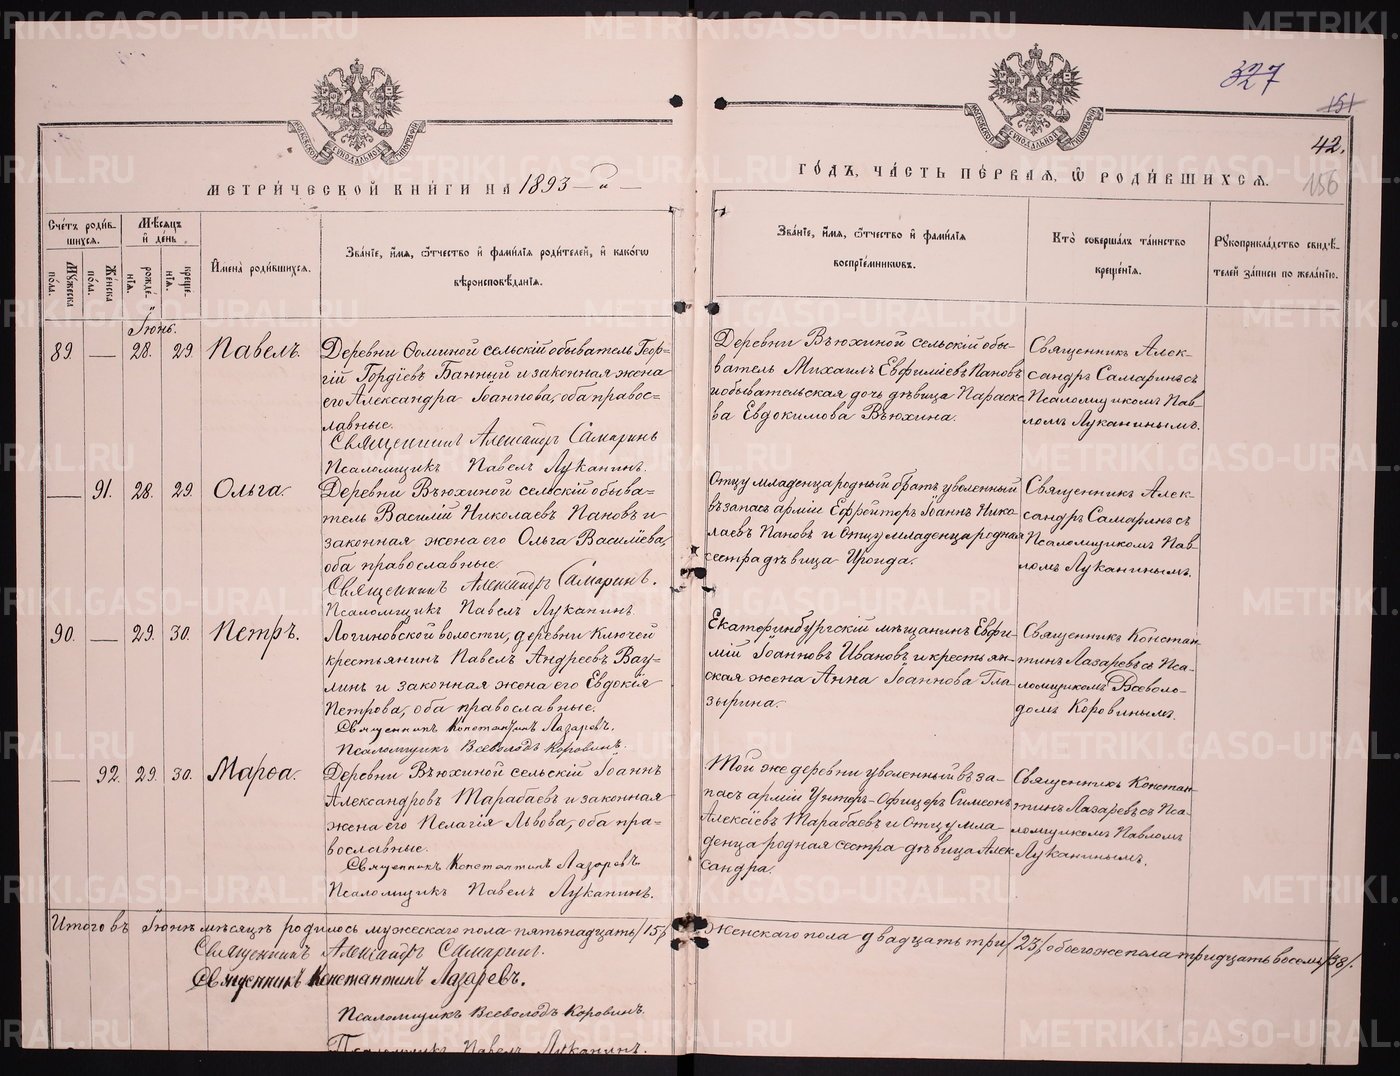 327
151
42.
156
МЕТРИ́ЧЕСКОЙ КНИ́ГИ НА 1893 — й —
ГО́ДЪ, ЧА́СТЬ ПЕ́РВАЯ, Ѡ РОДИ́ВШИХСЯ.
Сче́тъ роди́в-
шихся.
Мѣ́сяцъ
и́ де́нь
Му́жеска по́ла.
Же́нска по́ла.
рожде́-
нїя.
креще́-
нїя.
И́мена роди́вшихся.
Зва́нїе, и́мя, ѻ́тчество и́ фами́лїя роди́телей, и́ како́гѡ
вѣроисповѣ́данїя.
Зва́нїе, и́мя, ѻ́тчество и́ фами́лїя
воспрїе́мниковъ.
Кто̀ соверша́лъ та́инство
креще́нїя.
Рꙋкоприкла́дство свидѣ́-
телей за́писи по жела́нїю.
Іюнь.
89. — 28. 29. Павелъ.
Деревни Ѳоминой сельскій обыватель Геор-
гій Гордіевъ Банный и законная жена
его Александра Іоаннова, оба правос-
лавные.
Священникъ Александръ Самаринъ
Псаломщикъ Павелъ Луканинъ.
Деревни Вьюхиной сельскій обы-
ватель Михаилъ Евфиміевъ Пановъ
и обывательская дочь дѣвица Параске-
ва Евдокимова Вьюхина.
Священникъ Алек-
сандръ Самаринъ съ
Псаломщикомъ Пав-
ломъ Луканинымъ.
— 91. 28. 29. Ольга.
Деревни Вьюхиной сельскій обыва-
тель Василій Николаевъ Пановъ и
законная жена его Ольга Василіева,
оба православные.
Священникъ Александръ Самаринъ.
Псаломщикъ Павелъ Луканинъ
Отцу младенца родный братъ уволенный
въ запасъ арміи Ефрейторъ Іоаннъ Нико-
лаевъ Пановъ и Отцу младенца родная
сестра дѣвица Ироида.
Священникъ Алек-
сандръ Самаринъ съ
Псаломщикомъ Пав-
ломъ Луканинымъ.
90. — 29. 30. Петръ.
Логиновской волости, деревни Ключей
крестьянинъ Павелъ Андреевъ Вау-
линъ и законная жена его Евдокія
Петрова, оба православные.
Священникъ Константинъ Лазаревъ.
Псаломщикъ Всеволодъ Коровинъ.
Екатеринбургскій мѣщанинъ Евфи-
мій Іоанновъ Ивановъ и крестьян-
ская жена Анна Іоаннова Гла-
зырина.
Священникъ Констан-
тинъ Лазаревъ съ Пса-
ломщикомъ Всеволо-
домъ Коровинымъ.
— 92. 29. 30. Марѳа.
Деревни Вьюхиной сельскій Іоаннъ
Александровъ Тарабаевъ и законная
жена его Пелагія Львова, оба пра-
вославные.
Священникъ Константинъ Лазаревъ
Псаломщикъ Павелъ Луканинъ.
Той же деревни уволенный въ за-
пасъ арміи Унтеръ-Офицеръ Симеонъ
Алексіевъ Тарабаевъ и Отцу мла-
денца родная сестра дѣвица Алек-
сандра.
Священникъ Констан-
тинъ Лазаревъ съ Пса-
ломщикомъ Павломъ
Луканинымъ.
Итого въ Іюнѣ мѣсяцѣ родилось мужескаго пола пятьнадцать /15/ Женскаго пола двадцать три /23/ обоего же пола тридцать восемь /38/.
Священникъ Александръ Самаринъ.
Священникъ Константинъ Лазаревъ.
Псаломщикъ Всеволодъ Коровинъ.
Псаломщикъ Павелъ Луканинъ.